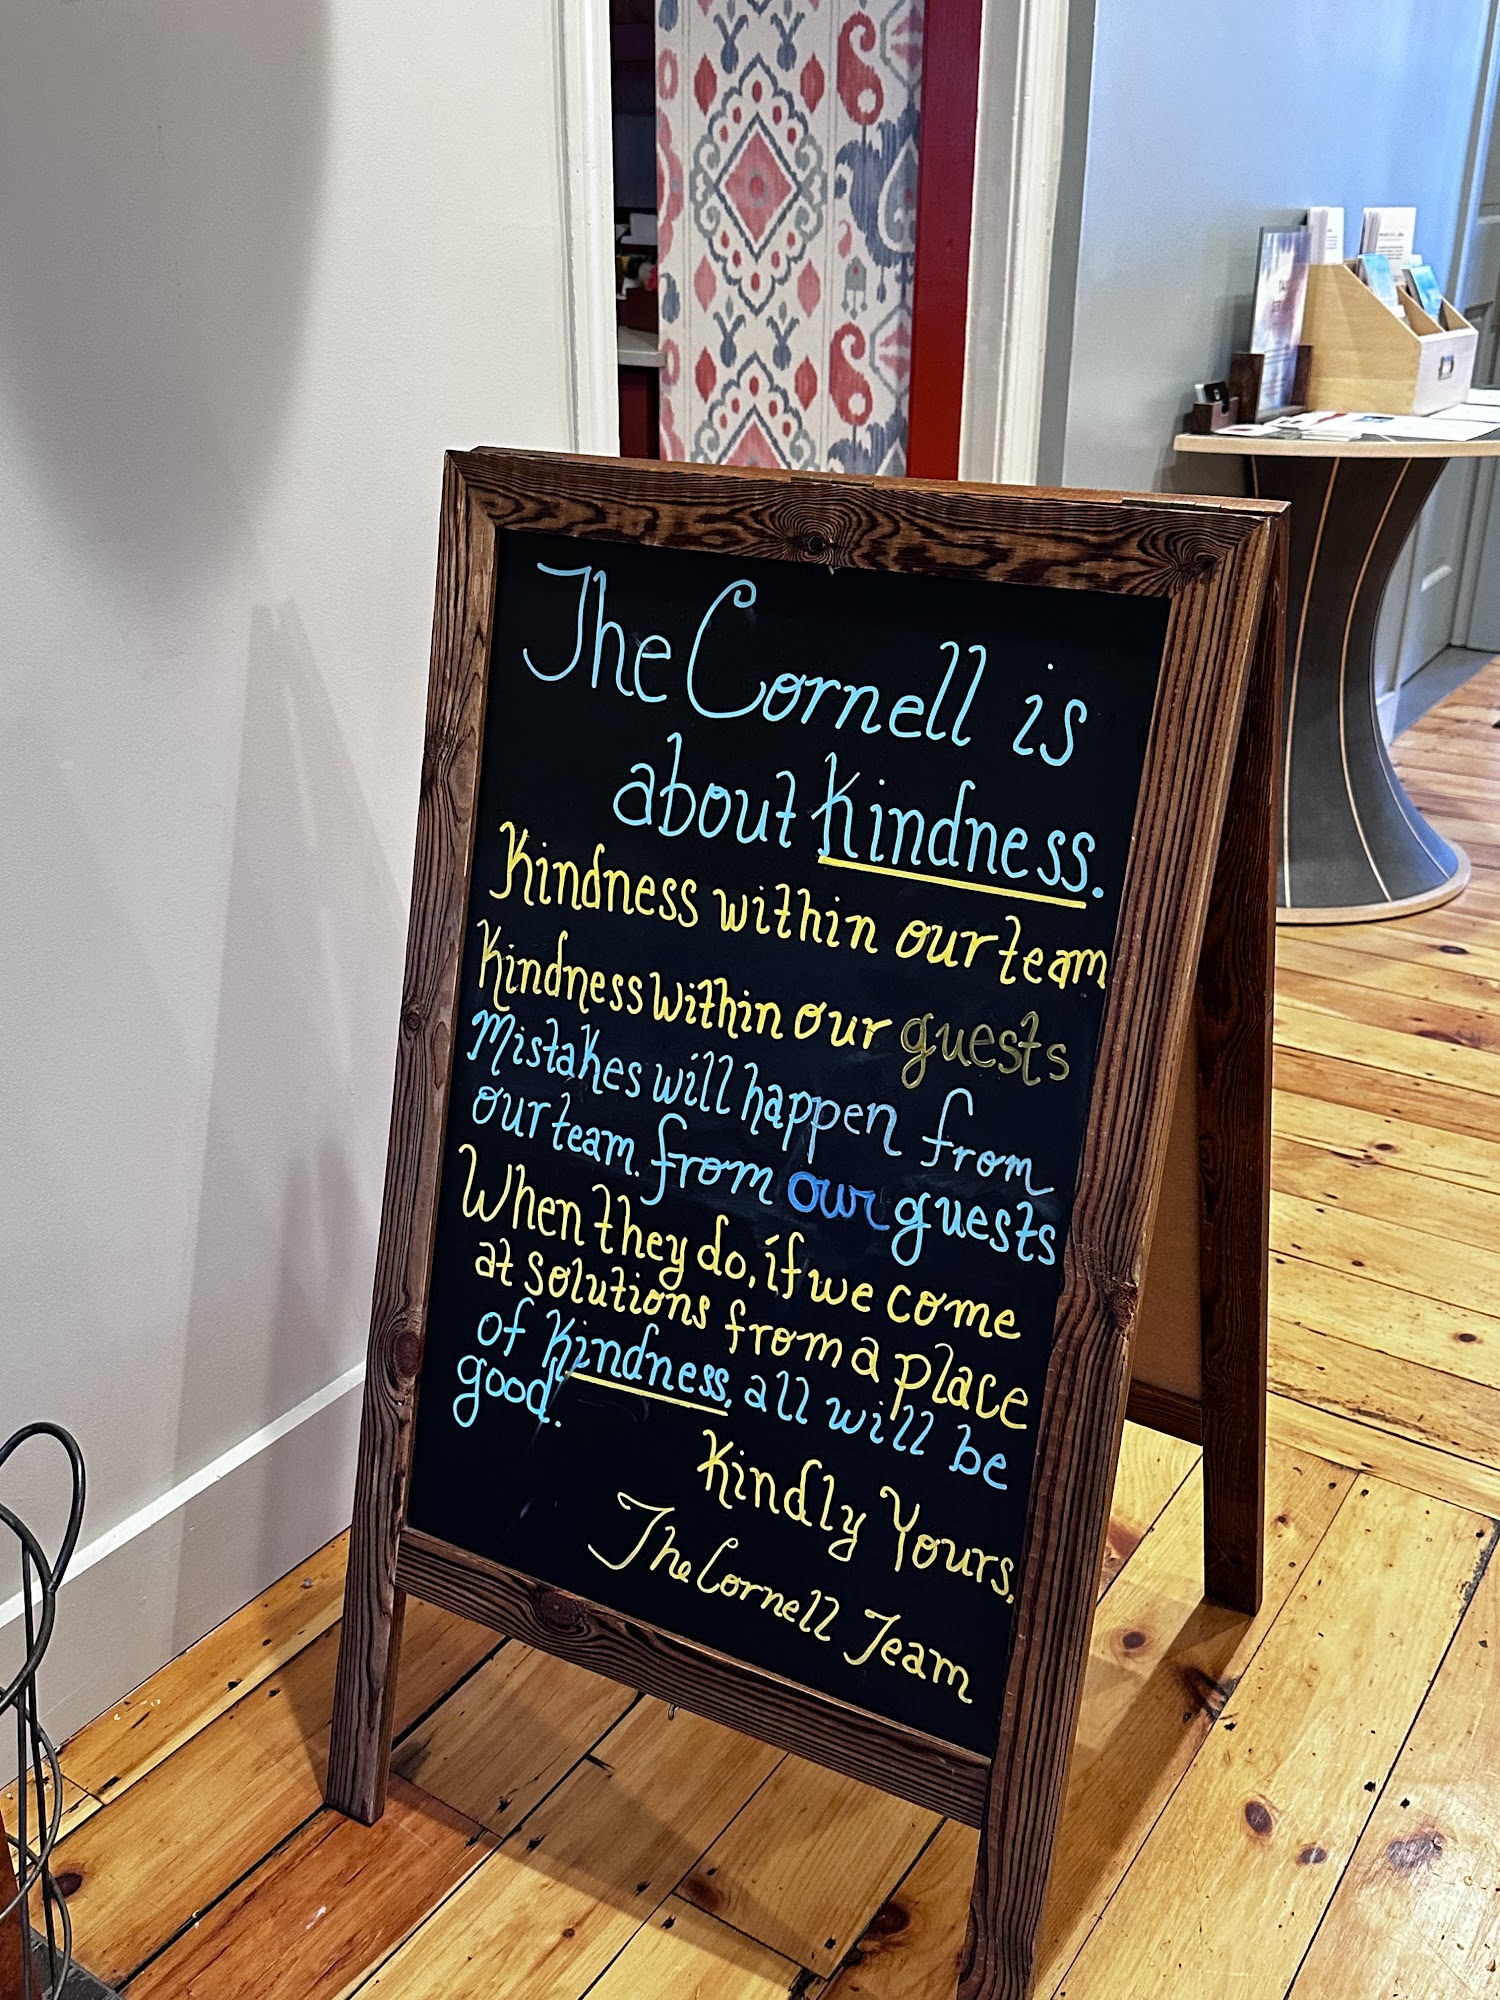 The Cornell is
about Kindness.
Kindness within our team
Kindness within our guests
Mistakes will happen from
our team. from our guests
When they do, if we come
at solutions from a place
of Kindness, all will be
good.
Kindly Yours,
The Cornell Team